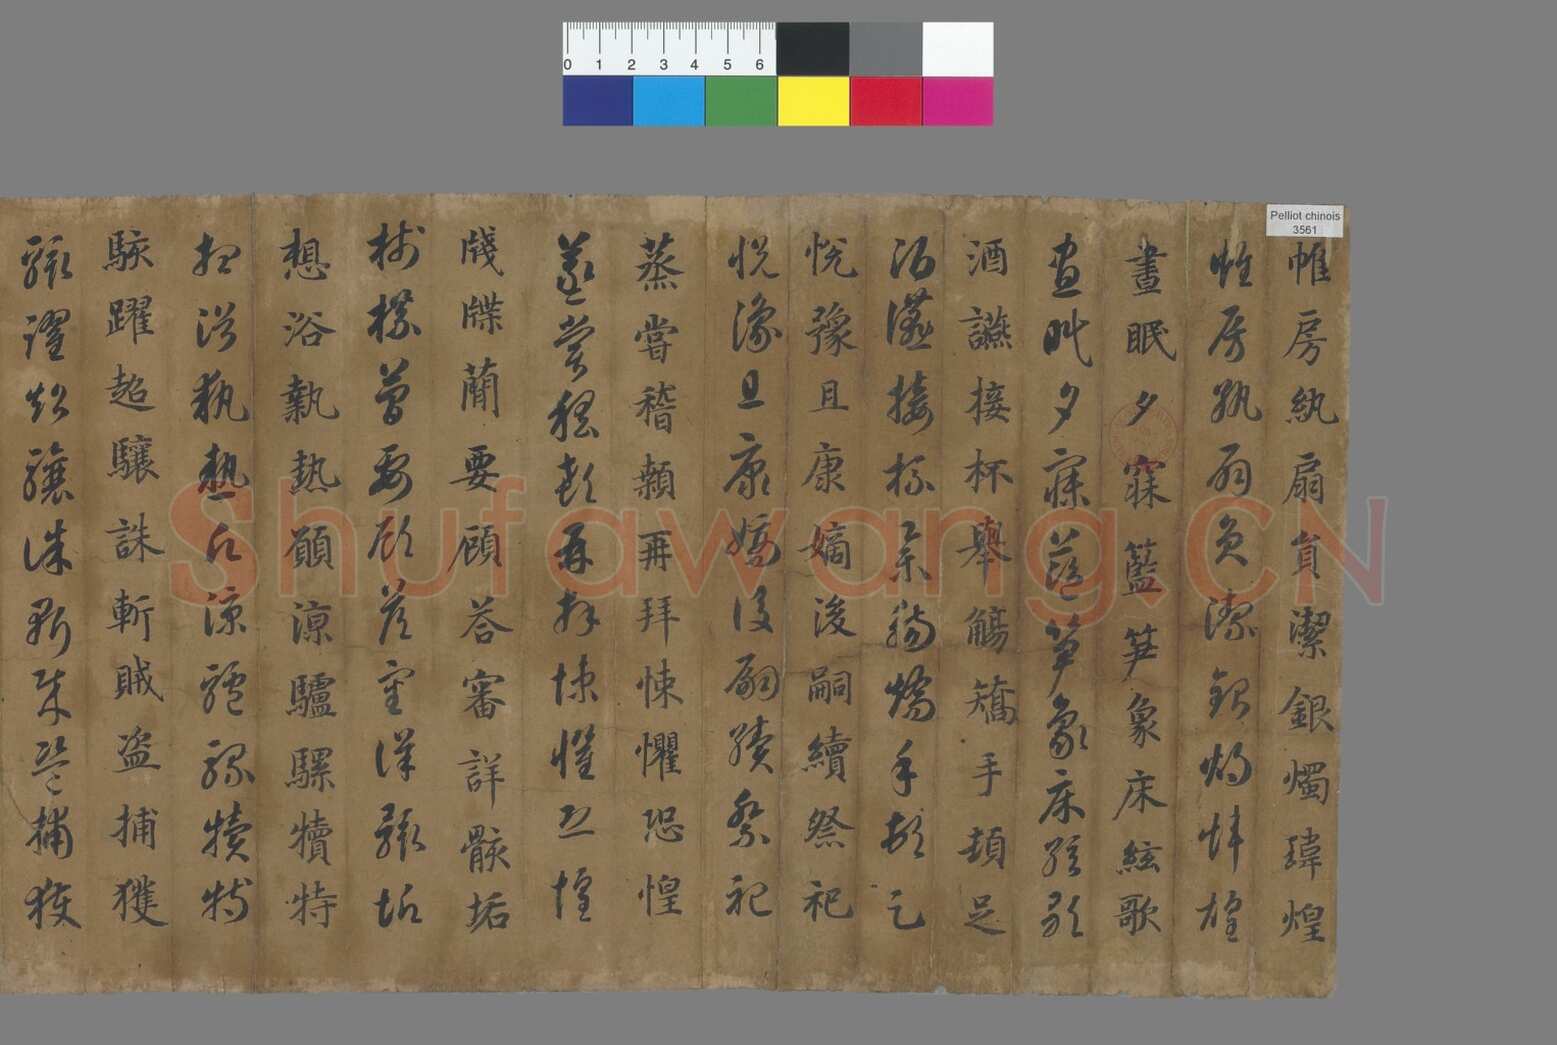 0 1 2 3 4 5 6
Pelliot chinois
3561
帷房紈扇員潔銀燭瑋煌
帷房紈扇員潔銀燭瑋煌
晝眠夕寐藍笋象床絃歌
晝眠夕寐藍笋象床絃歌
酒讌接杯舉觴矯手頓足
酒讌接杯舉觴矯手頓足
悅豫且康嫡後嗣續祭祀
悅豫且康嫡後嗣續祭祀
蒸嘗稽顙再拜悚懼恐惶
蒸嘗稽顙再拜悚懼恐惶
牋牒簡要顧荅審詳骸垢
牋牒簡要顧荅審詳骸垢
想浴執熱願涼驢騾犢特
想浴執熱願涼驢騾犢特
駭躍超驤誅斬賊盗捕獲
駭躍超驤誅斬賊盗捕獲
Shufawang.CN